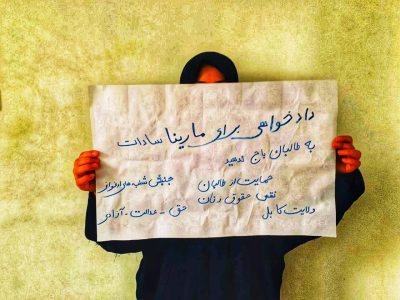 دادخواهی برای مارینا سادات
به طالبان باج ندهید
حمایت از طالبان
نقض حقوق زنان
ولایت کابل
جنبش شنبه های
حق - عدالت - آزادی